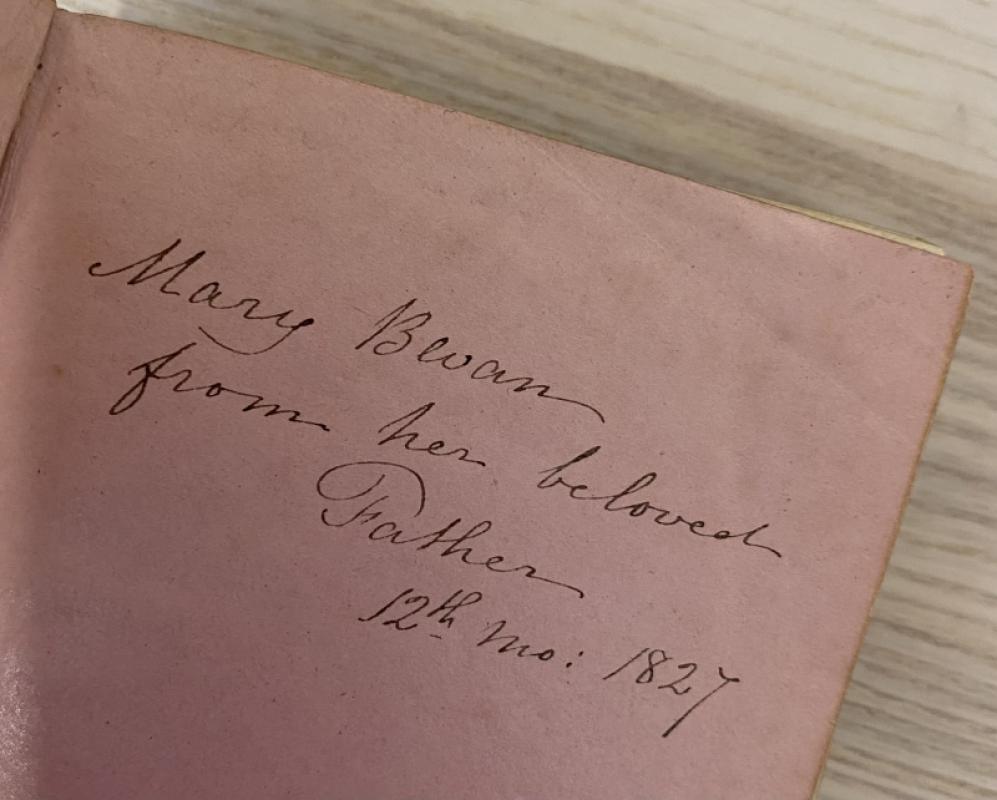 Mary Bevan
from her beloved
Father
12th mo: 1827